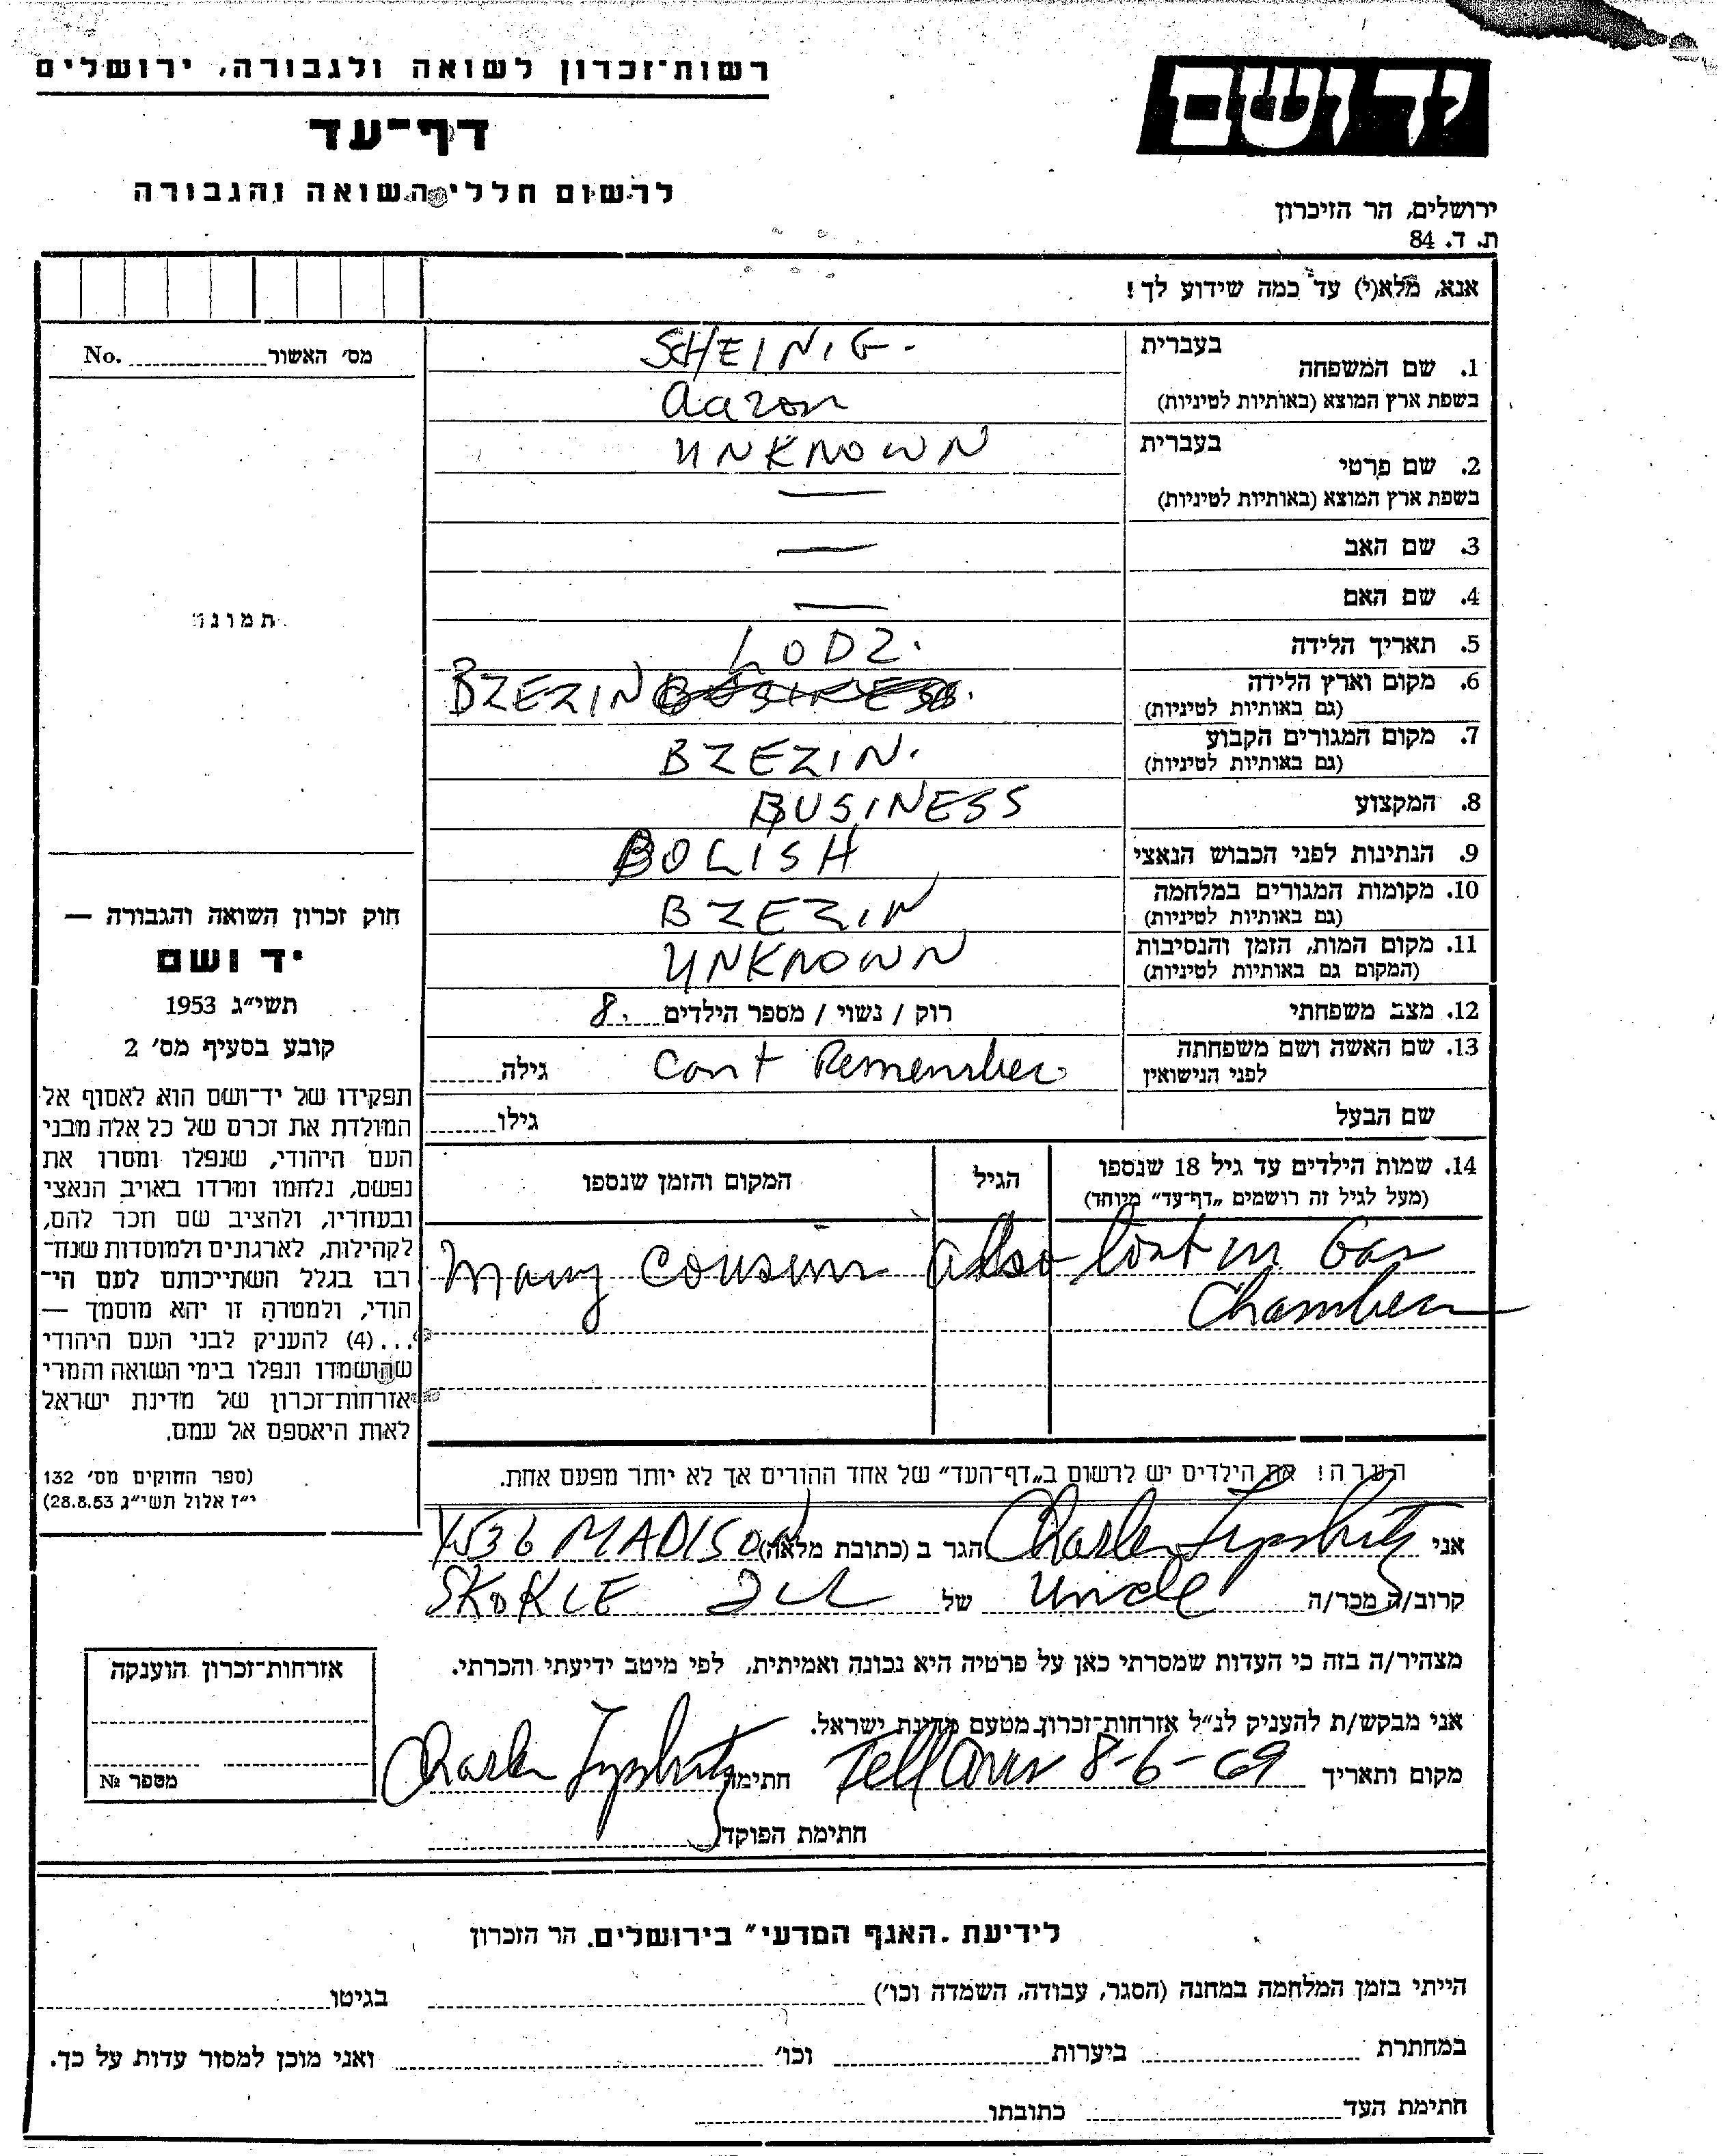 רשות־זכרון לשואה ולגבורה, ירושלים
דף־עד
לרשום חללי השואה והגבורה
יד ושם
ירושלים, הר הזיכרון
ת. ד. 84
אנא, מלא(י) עד כמה שידוע לך!
1. שם המשפחה בעברית SCHEINIG.
בשפת ארץ המוצא (באותיות לטיניות) Aaron
2. שם פרטי בעברית UNKNOWN
בשפת ארץ המוצא (באותיות לטיניות) —
3. שם האב —
4. שם האם —
5. תאריך הלידה LODZ.
6. מקום וארץ הלידה BZEZIN BUSINESS.
(גם באותיות לטיניות)
7. מקום המגורים הקבוע BZEZIN.
(גם באותיות לטיניות)
8. המקצוע BUSINESS
9. הנתינות לפני הכבוש הנאצי BOLISH
10. מקומות המגורים במלחמה BZEZIN
(גם באותיות לטיניות)
11. מקום המות, הזמן והנסיבות UNKNOWN
(המקום גם באותיות לטיניות)
12. מצב משפחתי רוק / נשוי / מספר הילדים 8.
13. שם האשה ושם משפחתה Cant Remember גילה
לפני הנישואין
שם הבעל גילו
14. שמות הילדים עד גיל 18 שנספו הגיל המקום והזמן שנספו
(מעל לגיל זה רושמים „דף־עד״ מיוחד)
Many cousin also lost in Gas
Chamber
הערה! את הילדים יש לרשום ב„דף־העד״ של אחד ההורים אך לא יותר מפעם אחת.
אני Charles Lipshitz הגר ב (כתובת מלאה) MADISON
קרוב/ה מכר/ה Uncle של SKOKIE Ill
מצהיר/ה בזה כי העדות שמסרתי כאן על פרטיה היא נכונה ואמיתית, לפי מיטב ידיעתי והכרתי.
אני מבקש/ת להעניק לנ״ל אזרחות־זכרון מטעם מדינת ישראל.
מקום ותאריך Tell Aviv 8-6-69 חתימה Charles Lipshitz
חתימת הפוקד
מס׳ האשור No.
תמונה
חוק זכרון השואה והגבורה —
יד ושם
תשי״ג 1953
קובע בסעיף מס׳ 2
תפקידו של יד־ושם הוא לאסוף אל
המולדת את זכרם של כל אלה מבני
העם היהודי, שנפלו ומסרו את
נפשם, נלחמו ומרדו באויב הנאצי
ובעוזריו, ולהציב שם וזכר להם,
לקהילות, לארגונים ולמוסדות שנח־
רבו בגלל השתייכותם לעם הי־
הודי, ולמטרה זו יהא מוסמך —
...(4) להעניק לבני העם היהודי
שהושמדו ונפלו בימי השואה והמרי
אזרחות־זכרון של מדינת ישראל
לאות היאספם אל עמם.
(ספר החוקים מס׳ 132
י״ז אלול תשי״ג 28.8.53)
אזרחות־זכרון הוענקה
מספר №
לידיעת „האגף המדעי״ בירושלים. הר הזכרון
הייתי בזמן המלחמה במחנה (הסגר, עבודה, השמדה וכו׳) בגיטו
במחתרת ביערות וכו׳ ואני מוכן למסור עדות על כך.
חתימת העד כתובתו